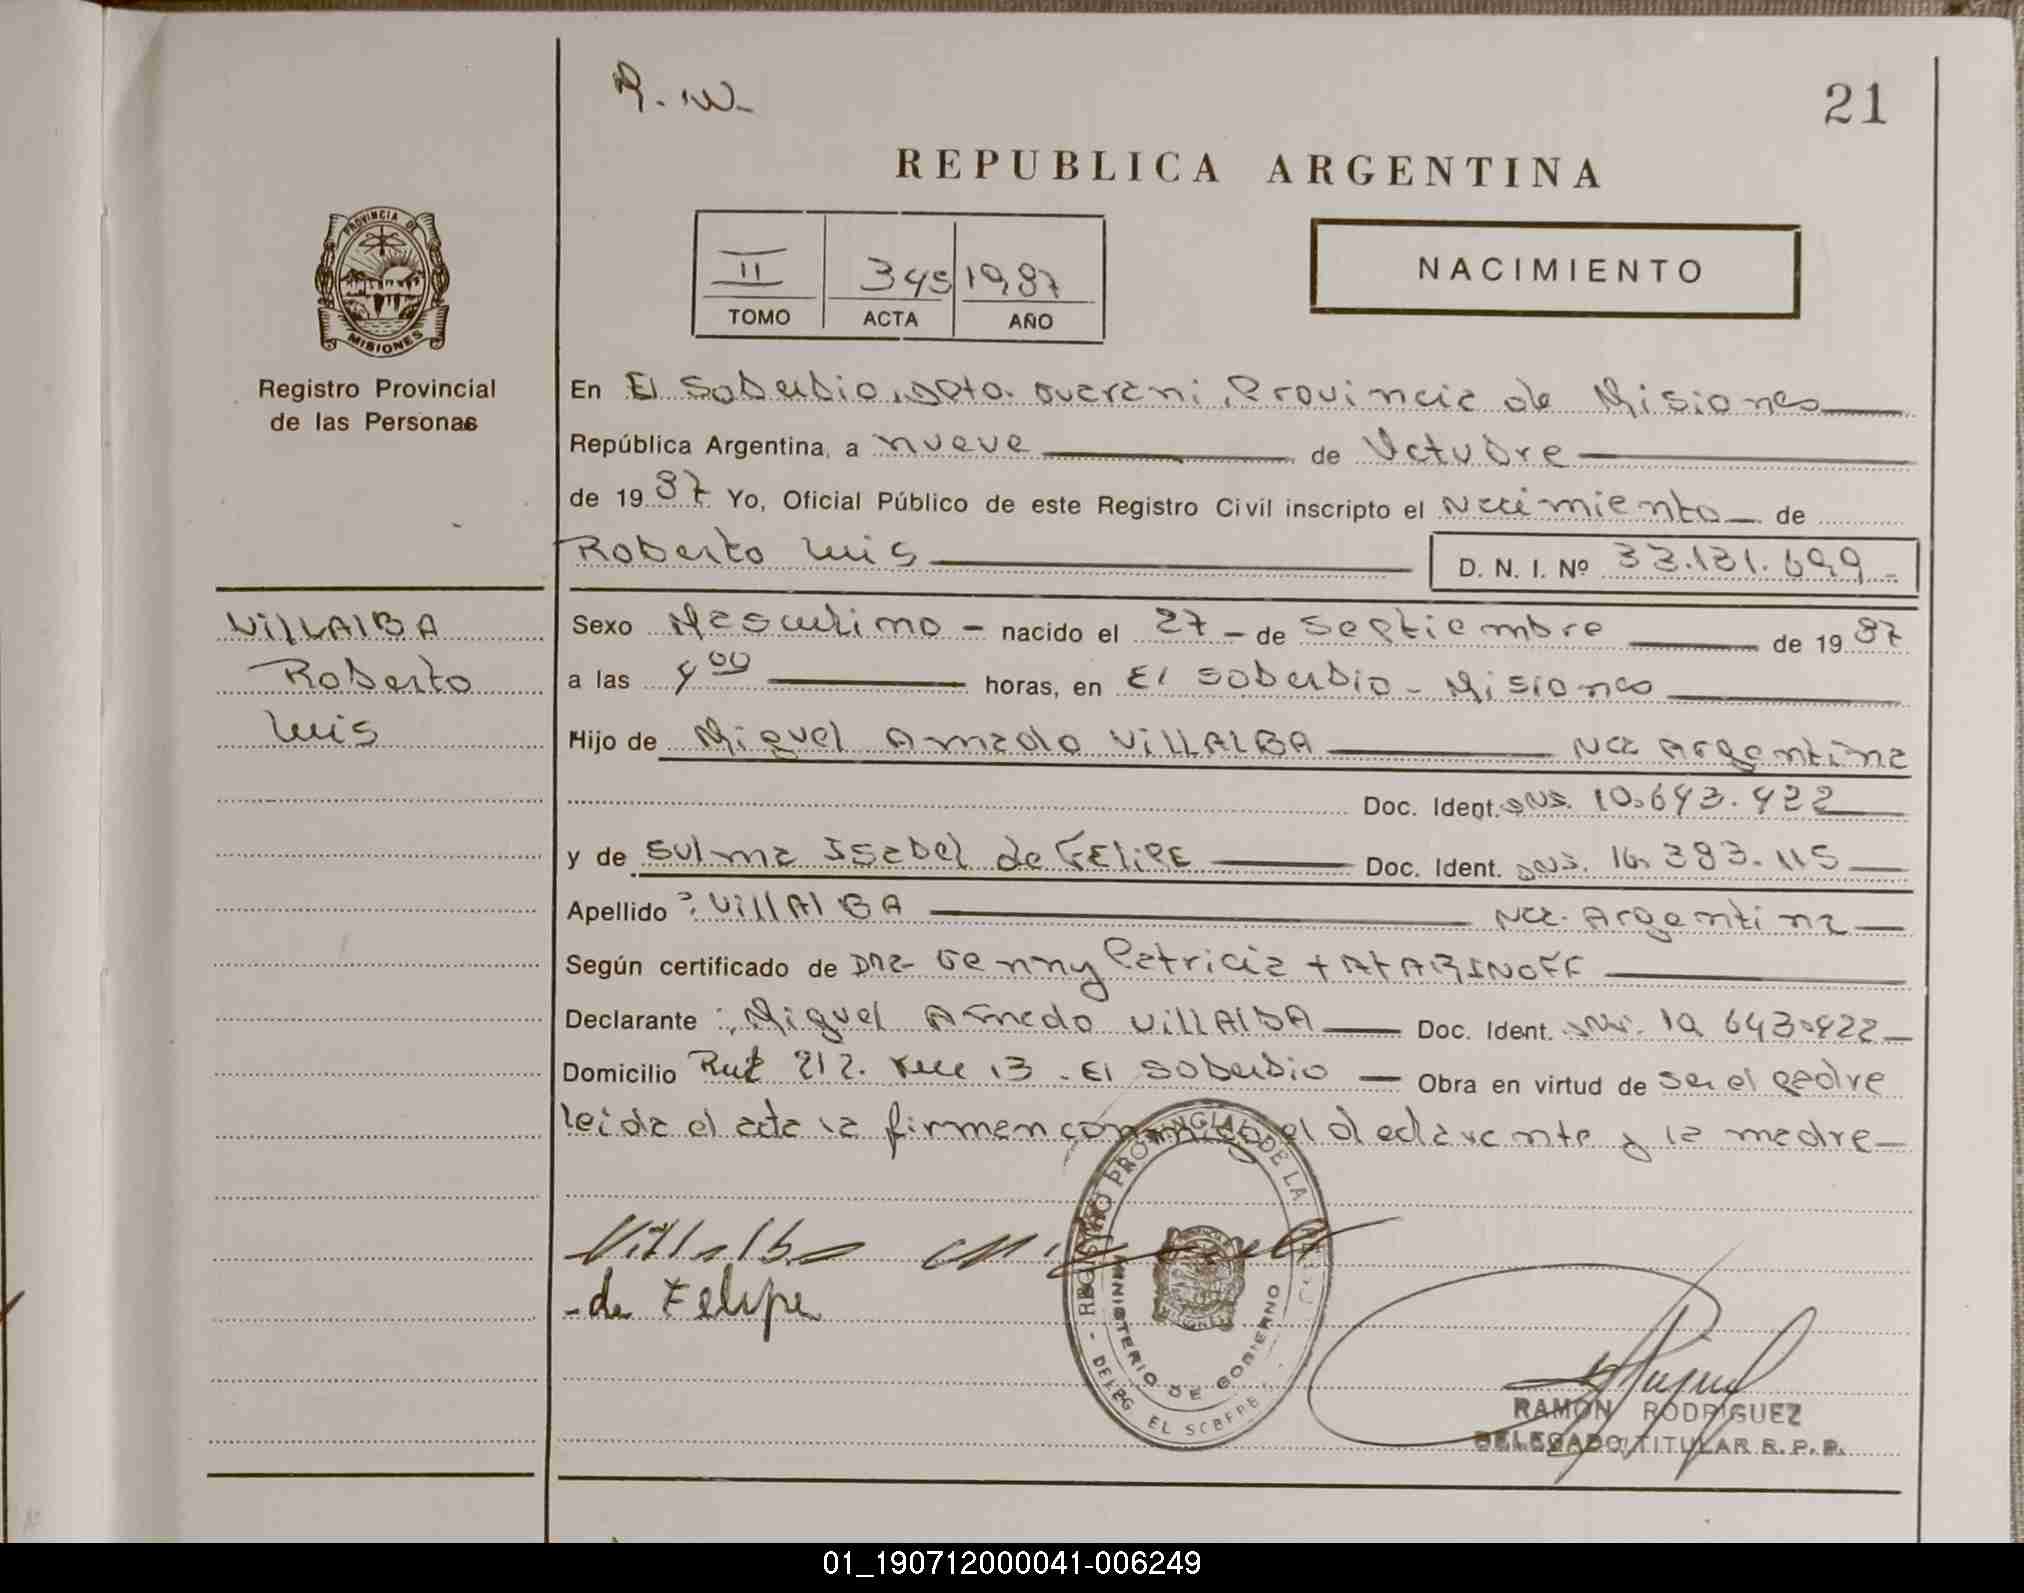 R. W.
21
REPUBLICA ARGENTINA
II 345 1987
TOMO ACTA AÑO
NACIMIENTO
PROVINCIA DE
MISIONES
Registro Provincial
de las Personas
En El Soberbio, Dpto. Guarani, Provincia de Misiones
República Argentina, a nueve de Octubre
de 1987 Yo, Oficial Público de este Registro Civil inscripto el Nacimiento de
Roberto Luis D. N. I. Nº 33.131.699
VILLALBA
Roberto
Luis
Sexo Masculino - nacido el 27 - de Septiembre de 1987
a las 4 00 horas, en El Soberbio - Misiones
Hijo de Miguel Amado VILLALBA Nac Argentina
Doc. Ident. DNI. 10.643.422
y de Sulma Isabel de FELIPE Doc. Ident. DNI. 16.383.115
Apellido : VILLALBA Nac. Argentina
Según certificado de Dra- Genny Patricia TATARINOFF
Declarante : Miguel Amado VILLALBA Doc. Ident. DNI. 10.643.422
Domicilio Rut 212. Km 13 - El Soberbio - Obra en virtud de ser el padre
leida el acta la firman conmigo el declarante y la madre
Villalba Miguel
- de Felipe
REGISTRO PROVINCIAL DE LA
MINISTERIO DE GOBIERNO
DELEG EL SOBERB
RAMON RODRIGUEZ
DELEGADO TITULAR R. P. P.
01_190712000041-006249